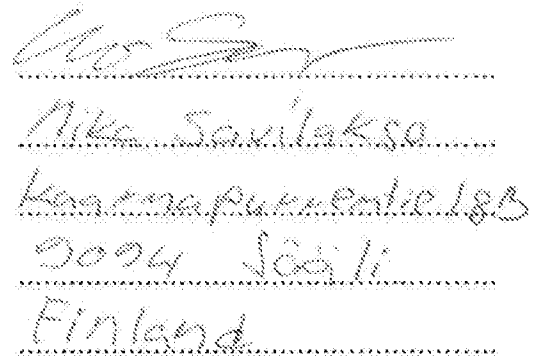 Mika Savilakso
Kaarnapurrentie 18B
9094 Jääli
Finland